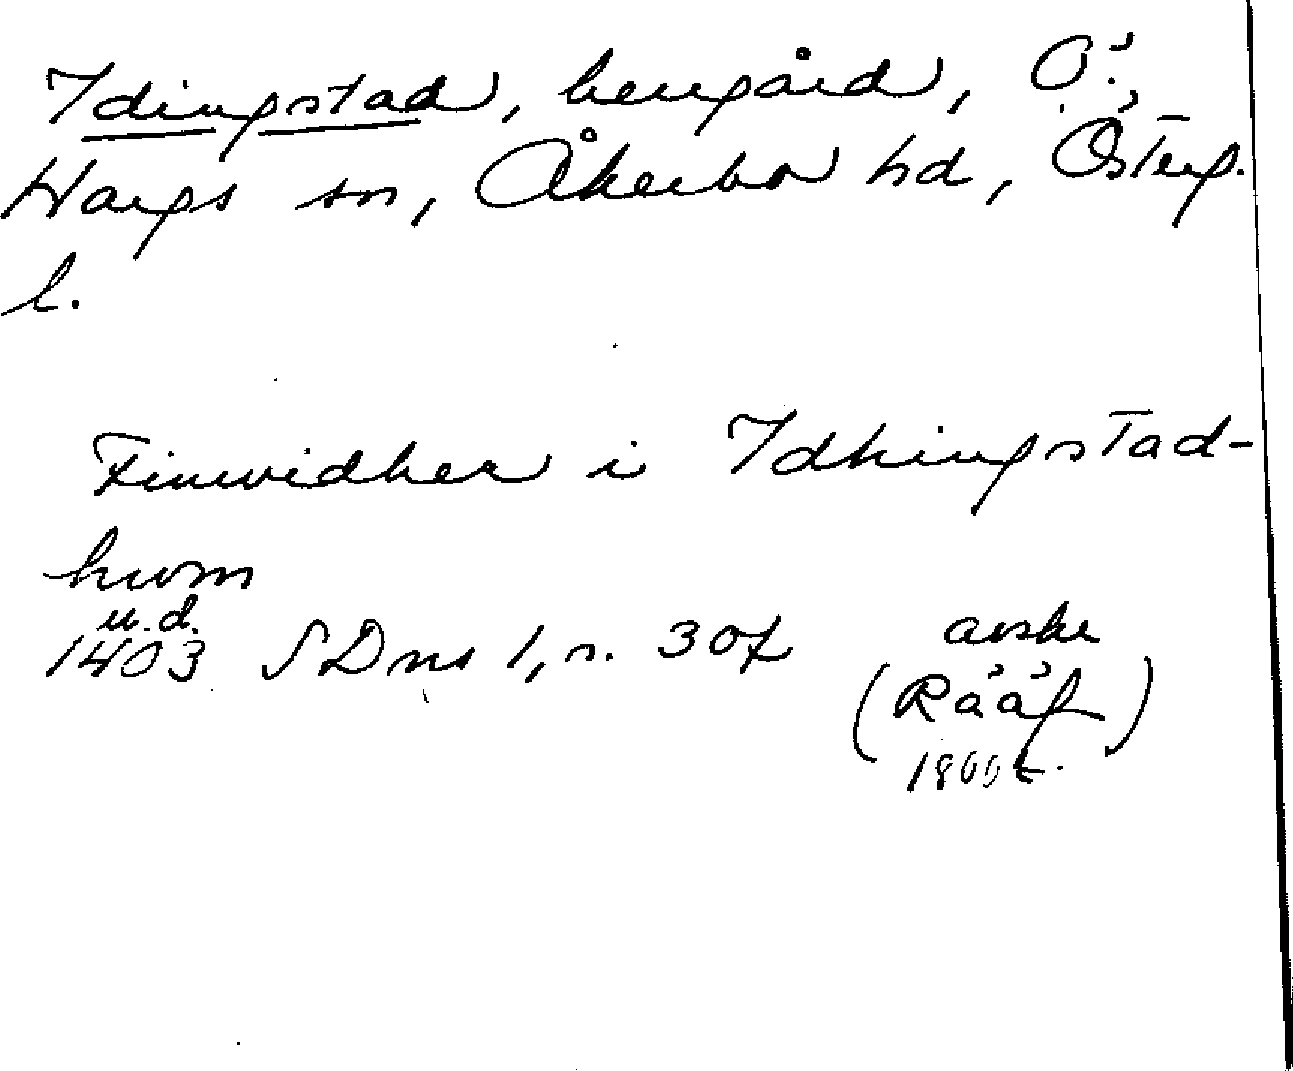 Idingstad, herrgård, Ö.,
Hargs sn, Åkerbo hd, Österg.
l.
Finwidher i Idhingstad-
hwm
u.d.
1403 SDns 1, s. 307 avskr
(Rääf)
1800t.